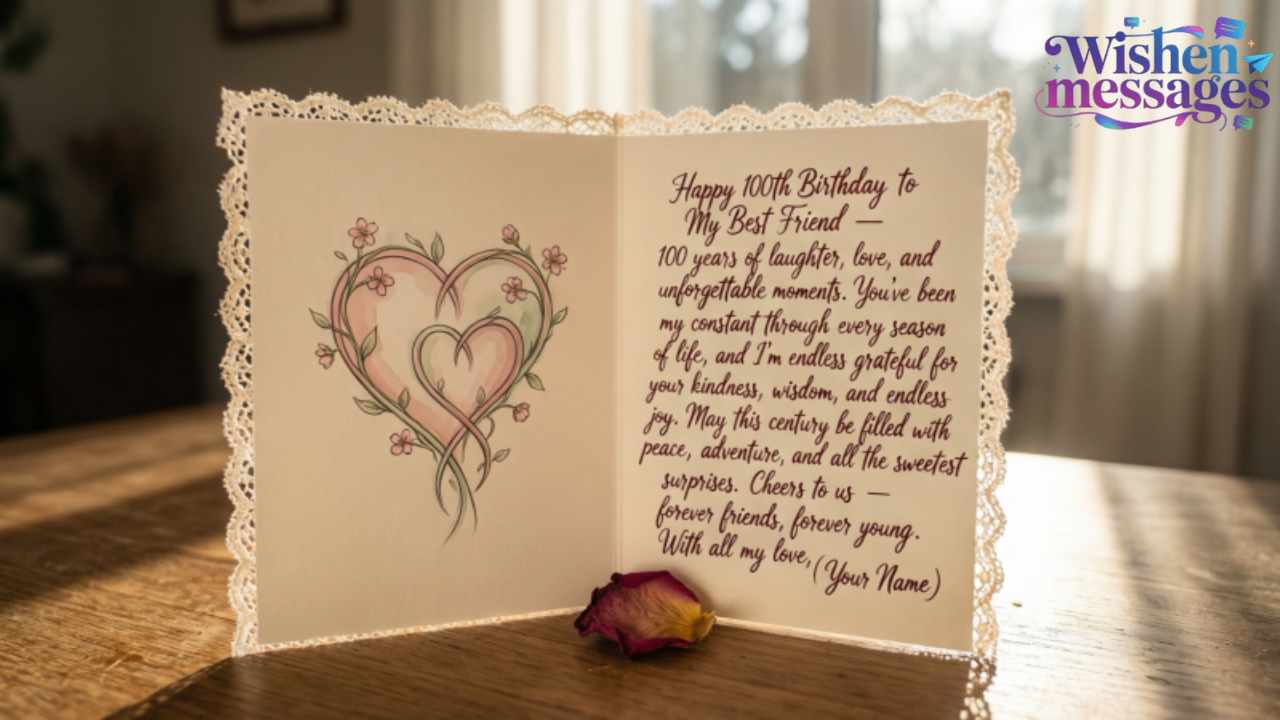 Wishen
messages
Happy 100th Birthday to
My Best Friend —
100 years of laughter, love, and
unforgettable moments. You've been
my constant through every season
of life, and I'm endless grateful for
your kindness, wisdom, and endless
joy. May this century be filled with
peace, adventure, and all the sweetest
surprises. Cheers to us —
forever friends, forever young.
With all my love, (Your Name)